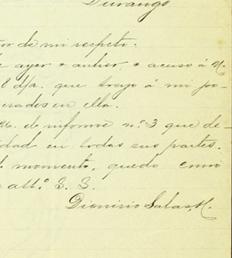 Durango
or de mi respeto.
e ayer o anher, o acuso á M.
8 d/a. que trajo á mi po-
erados en ella.
de informe n.º 3 que de-
dad en todas sus partes.
momento, quedo como
att.º S. S.
Dionisio Salas M.